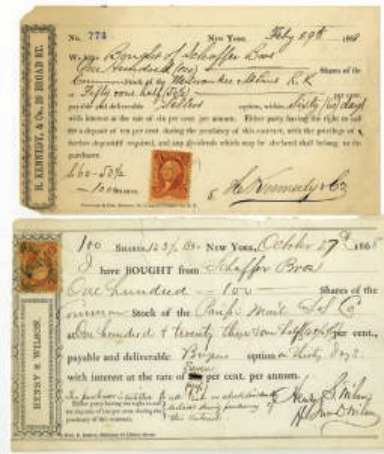 No. 774 New York, Feby 29th 1868
We have Bought of Schaffer Bros
One Hundred (100) Shares of the
Common Stock of the Milwaukee & St Paul R.R.
at Fifty one half (50½) per cent.
payable and deliverable Sellers option, within Sixty (60) days
with interest at the rate of six per cent per annum. Either party having the right to call
for a deposit of ten per cent. during the pendency of this contract, with the privilege of
further deposits if required, and any dividends which may be declared shall belong to the
purchaser.
S60-50½
-100 Shares.
H. Kennedy & Co
H. KENNEDY, & Co., 29 BROAD ST.
100 SHARES 123½ B30 NEW YORK, October 27th 1868
I have BOUGHT from Schaffer Bros
One hundred — 100 — Shares of the
Common Stock of the Pacific Mail S.S. Co
at One hundred & twenty three & one half per cent.,
payable and deliverable Buyers option in thirty days
with interest at the rate of Seven per cent. per annum.
Either party having the right to call
for deposits of ten per cent. during the
pendency of this contract.
Henry S. Wilson
HENRY S. WILSON.